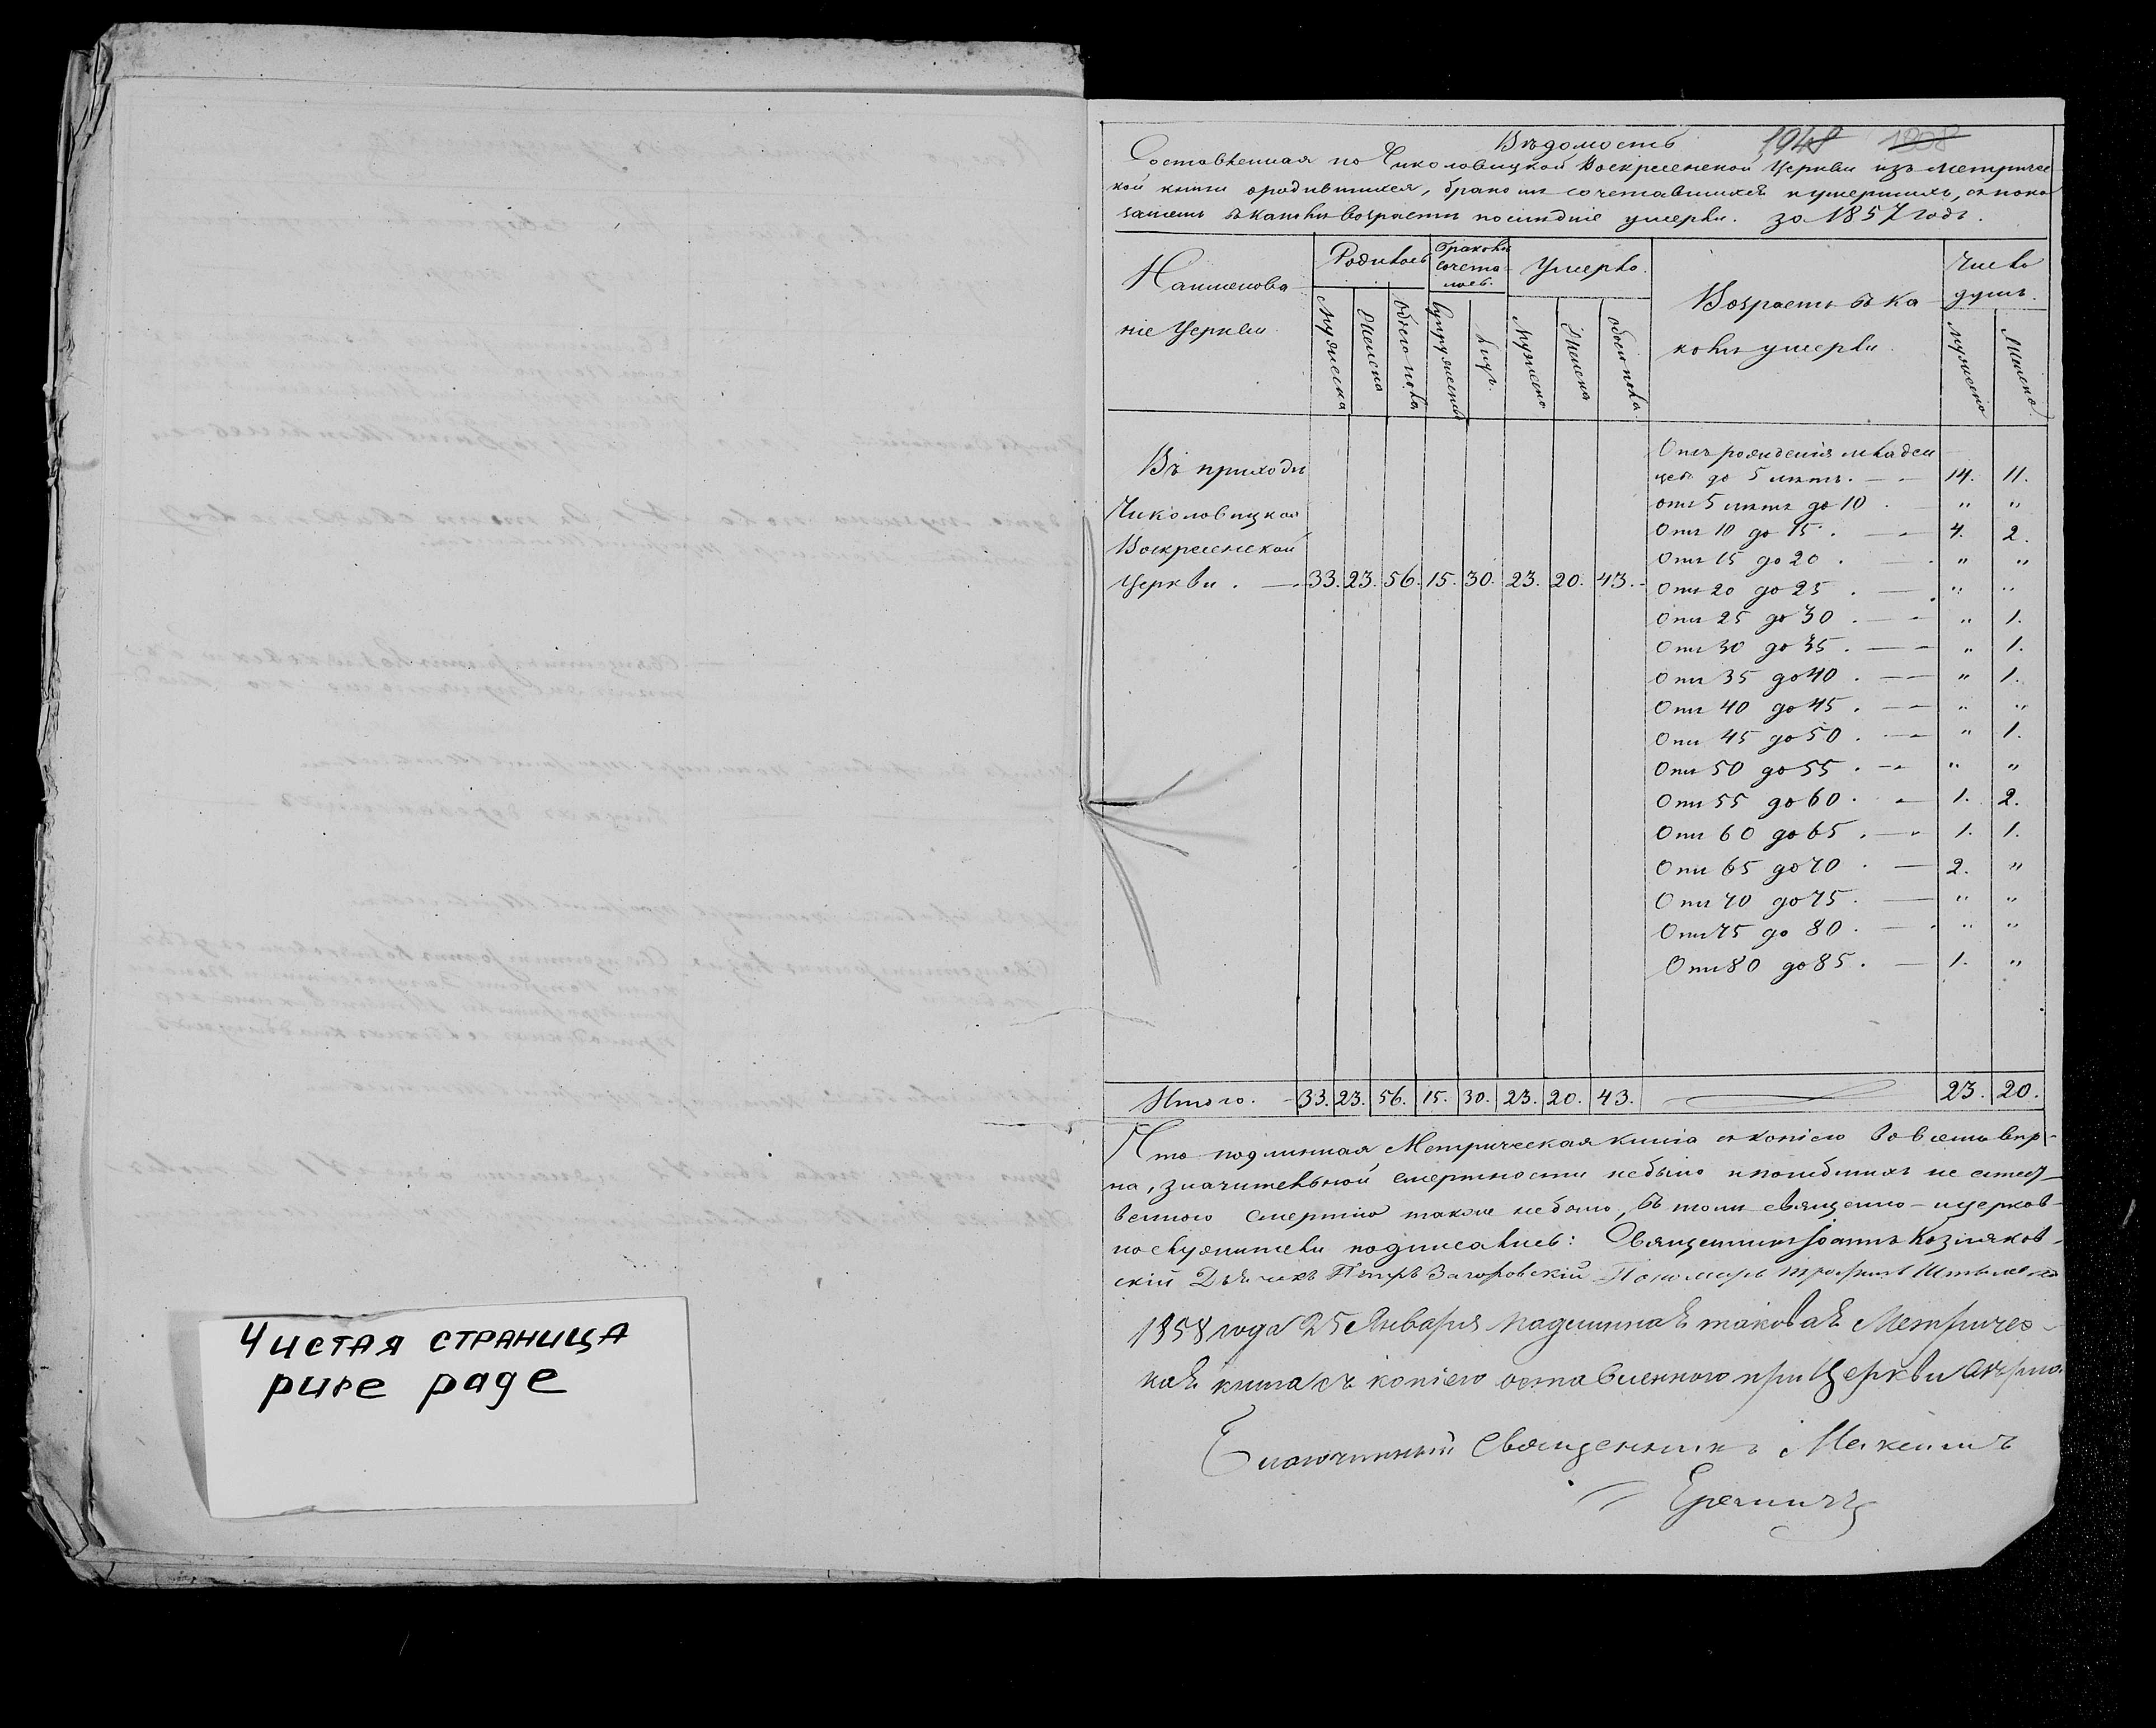 Чистая страница
pure page
Вѣдомость 1948 1808
Составленная по Чиколовицкой Воскресенской Церкви изъ Метричес
кой книги о родившихся, бракомъ сочетавшихся и умершихъ, съ пока
заніемъ въ какихъ возрастѣ послѣдніе умерли. за 1857 годъ.
Наименова
ніе Церкви.
Родилось
Мужеска
Женска
Обоего пола
Бракомъ
сочета
лось.
Супружествъ
Лицъ.
Умерло.
Мужеска
Женска
Обоего пола
Возрастъ въ ка
комъ умерли.
Число
душъ.
Мужеска
Женска
Въ приходѣ
Чиколовицкой
Воскресенской
Церкви . — 33. 23. 56. 15. 30. 23. 20. 43.
Отъ рожденія младен
цевъ до 5 лѣтъ. — 14. 11.
отъ 5 лѣтъ до 10 . " "
Отъ 10 до 15 . — 4. 2.
Отъ 15 до 20 . — " "
Отъ 20 до 25 . — " "
Отъ 25 до 30 . — " 1.
Отъ 30 до 35 . — " 1.
Отъ 35 до 40 . — " 1.
Отъ 40 до 45 . — " "
Отъ 45 до 50 . — " 1.
Отъ 50 до 55 . — " "
Отъ 55 до 60 . — 1. 2.
Отъ 60 до 65 . — 1. 1.
Отъ 65 до 70 . — 2. "
Отъ 70 до 75 . — " "
Отъ 75 до 80 . — " "
Отъ 80 до 85 . — 1. "
Итого. 33. 23. 56. 15. 30. 23. 20. 43. 23. 20.
Что подлинная Метрическая книга съ копіею во всемъ вѣр-
на, значительной смертности не было и погибшихъ не естест-
венною смертію также не было, въ томъ священно-церков-
нослужители подписались: Священникъ Іоаннъ Козляков-
скій Дьячекъ Петръ Загоровскій Пономарь Трофимъ
1858 года 25 Января подлинная таковая Метричес-
кая книга съ копіею оставленною при Церкви
Благочинный Священникъ Максимъ
Еремичъ